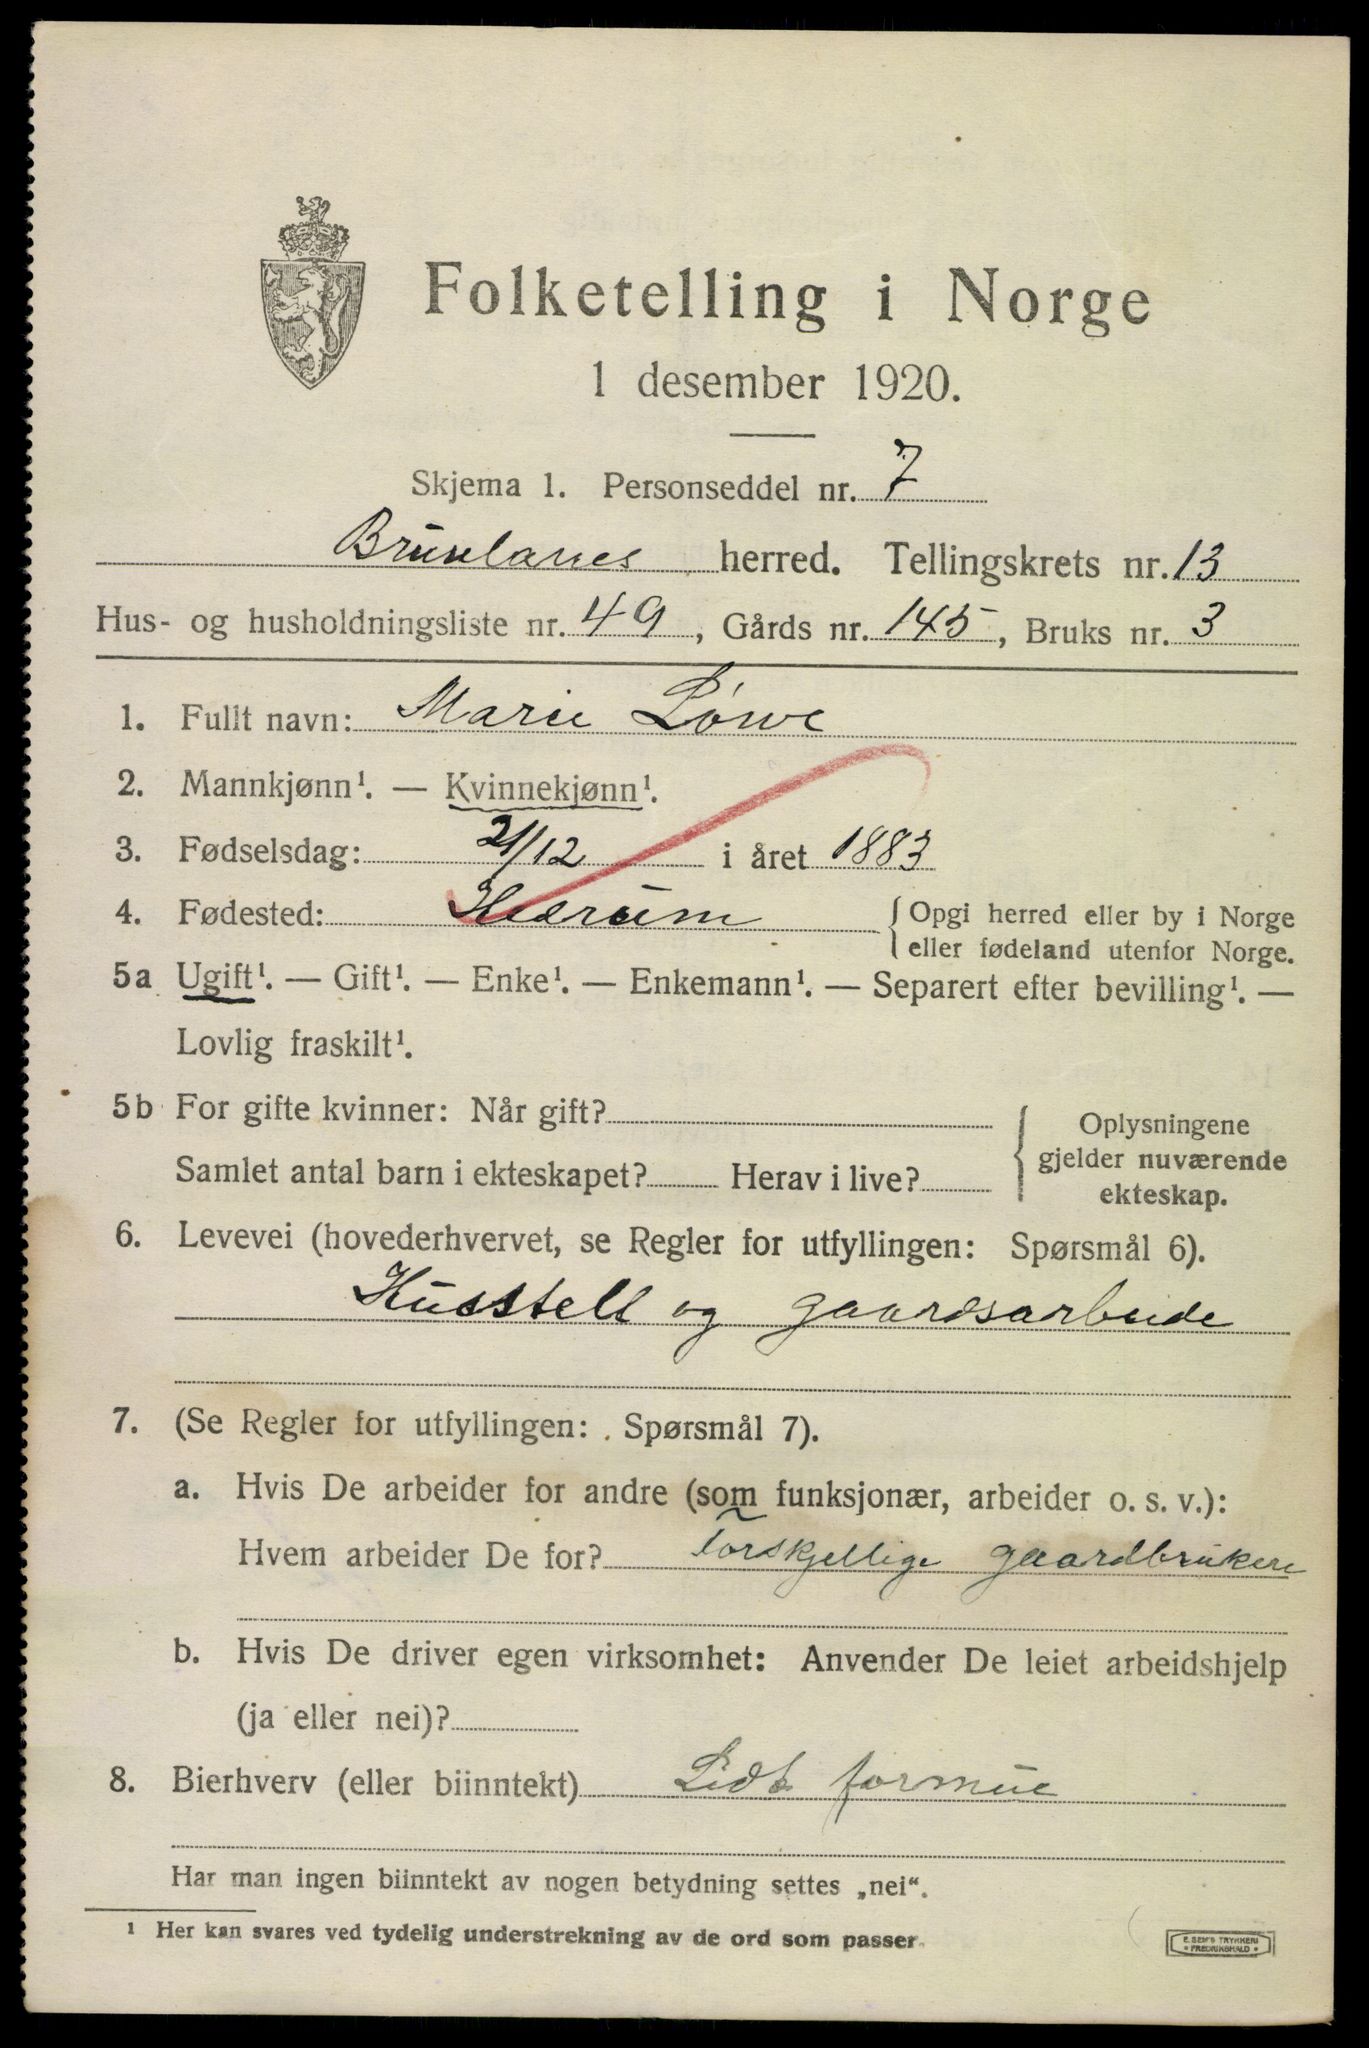 Folketelling i Norge
1 desember 1920.
Skjema 1. Personseddel nr. 7
Brunlanes herred. Tellingskrets nr. 13
Hus- og husholdningsliste nr. 49, Gårds nr. 145, Bruks nr. 3
1. Fullt navn: Marie Løwe
2. Mannkjønn¹. — Kvinnekjønn¹.
3. Fødselsdag: 21/12 i året 1883
4. Fødested: Hedrum {Opgi herred eller by i Norge
eller fødeland utenfor Norge.
5a Ugift¹. — Gift¹. — Enke¹. — Enkemann¹. — Separert efter bevilling¹. —
Lovlig fraskilt¹.
5b For gifte kvinner: Når gift?
Samlet antal barn i ekteskapet? Herav i live?
Oplysningene
gjelder nuværende
ekteskap.
6. Levevei (hovederhvervet, se Regler for utfyllingen: Spørsmål 6).
Husstell og gaardsarbeide
7. (Se Regler for utfyllingen: Spørsmål 7).
a. Hvis De arbeider for andre (som funksjonær, arbeider o. s. v.):
Hvem arbeider De for? Forskjellige gaardbrukere
b. Hvis De driver egen virksomhet: Anvender De leiet arbeidshjelp
(ja eller nei)?
8. Bierhverv (eller biinntekt) Lidt formue
Har man ingen biinntekt av nogen betydning settes „nei“.
¹ Her kan svares ved tydelig understrekning av de ord som passer.
E. SEM'S TRYKKERI
• FREDRIKSHALD •